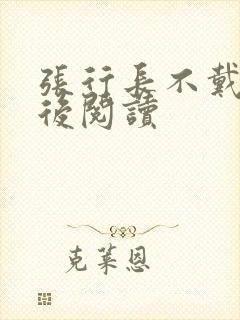 張行長不戴
後閱讀
克萊恩